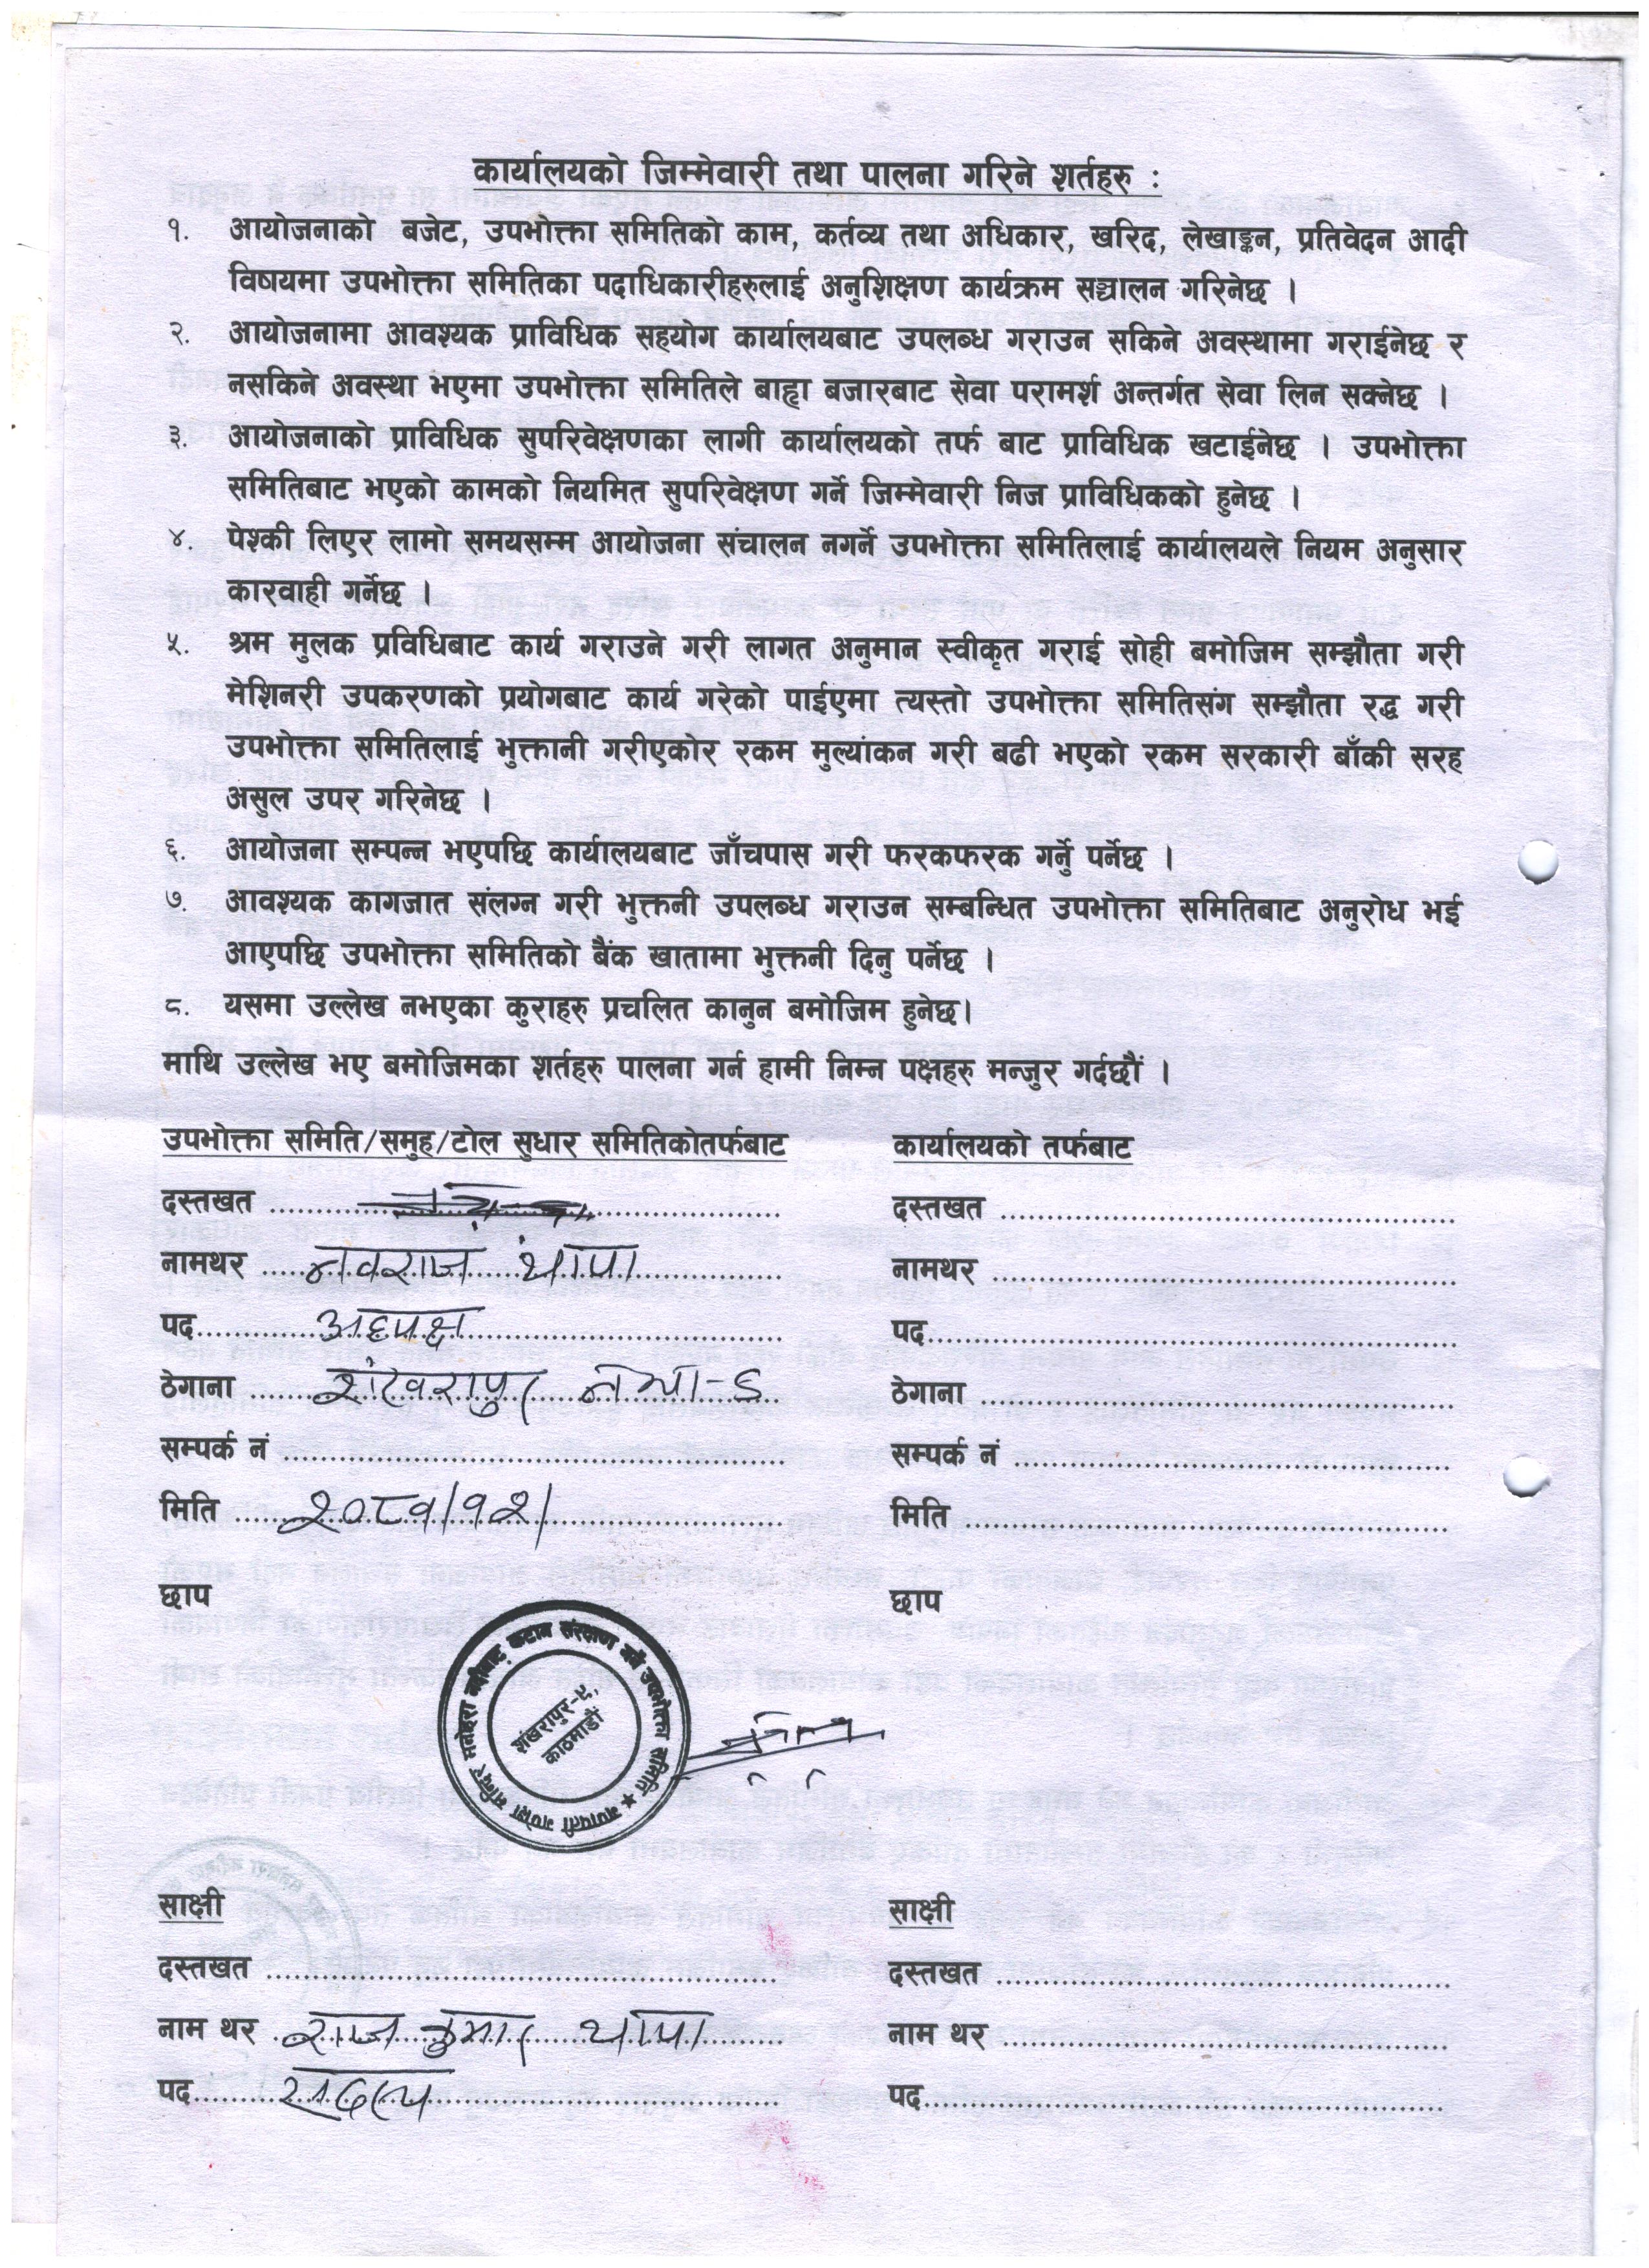 कार्यालयको जिम्मेवारी तथा पालना गरिने शर्तहरु :
१. आयोजनाको बजेट, उपभोक्ता समितिको काम, कर्तव्य तथा अधिकार, खरिद, लेखाङ्कन, प्रतिवेदन आदी
विषयमा उपभोक्ता समितिका पदाधिकारीहरुलाई अनुशिक्षण कार्यक्रम सञ्चालन गरिनेछ ।
२. आयोजनामा आवश्यक प्राविधिक सहयोग कार्यालयबाट उपलब्ध गराउन सकिने अवस्थामा गराईनेछ र
नसकिने अवस्था भएमा उपभोक्ता समितिले बाह्य बजारबाट सेवा परामर्श अन्तर्गत सेवा लिन सक्नेछ ।
३. आयोजनाको प्राविधिक सुपरिवेक्षणका लागी कार्यालयको तर्फ बाट प्राविधिक खटाईनेछ । उपभोक्ता
समितिबाट भएको कामको नियमित सुपरिवेक्षण गर्ने जिम्मेवारी निज प्राविधिकको हुनेछ ।
४. पेश्की लिएर लामो समयसम्म आयोजना संचालन नगर्ने उपभोक्ता समितिलाई कार्यालयले नियम अनुसार
कारवाही गर्नेछ ।
५. श्रम मुलक प्रविधिबाट कार्य गराउने गरी लागत अनुमान स्वीकृत गराई सोही बमोजिम सम्झौता गरी
मेशिनरी उपकरणको प्रयोगबाट कार्य गरेको पाईएमा त्यस्तो उपभोक्ता समितिसंग सम्झौता रद्ध गरी
उपभोक्ता समितिलाई भुक्तानी गरीएकोर रकम मुल्यांकन गरी बढी भएको रकम सरकारी बाँकी सरह
असुल उपर गरिनेछ ।
६. आयोजना सम्पन्न भएपछि कार्यालयबाट जाँचपास गरी फरकफरक गर्नु पर्नेछ ।
७. आवश्यक कागजात संलग्न गरी भुक्तनी उपलब्ध गराउन सम्बन्धित उपभोक्ता समितिबाट अनुरोध भई
आएपछि उपभोक्ता समितिको बैंक खातामा भुक्तनी दिनु पर्नेछ ।
८. यसमा उल्लेख नभएका कुराहरु प्रचलित कानुन बमोजिम हुनेछ।
माथि उल्लेख भए बमोजिमका शर्तहरु पालना गर्न हामी निम्न पक्षहरु मन्जुर गर्दछौं ।
उपभोक्ता समिति/समुह/टोल सुधार समितिकोतर्फबाट कार्यालयको तर्फबाट
दस्तखत दस्तखत
नामथर नवराज थापा नामथर
पद अध्यक्ष पद
ठेगाना शंखरापुर नपा-६ ठेगाना
सम्पर्क नं सम्पर्क नं
मिति २०८१/१२/ मिति
छाप छाप
गणपती गणेश मन्दिर मनोहरा नदीबाट कटान संरक्षण कार्य उपभोक्ता समिति ★
शंखरापुर-९,
काठमाडौं
साक्षी साक्षी
दस्तखत दस्तखत
नाम थर राज कुमार थापा नाम थर
पद सदस्य पद